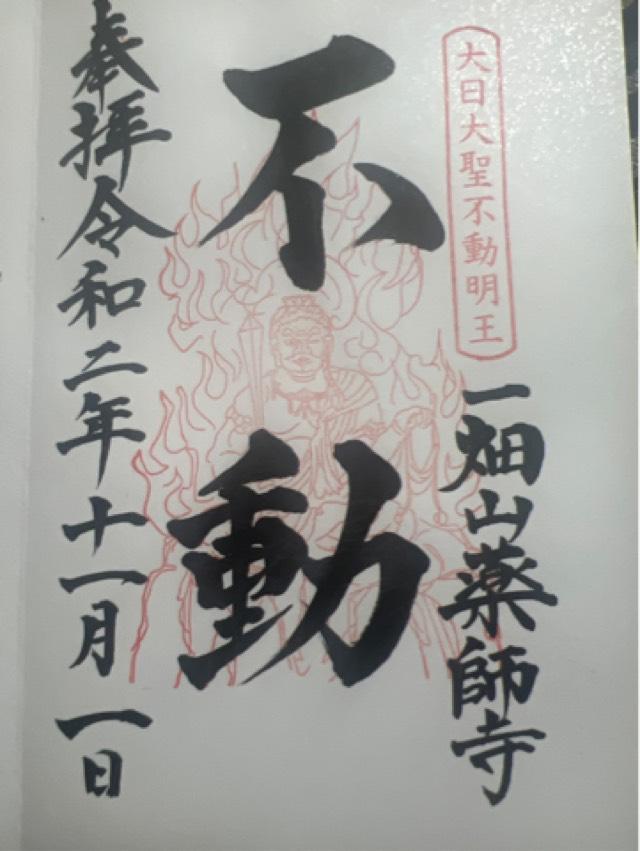 大日大聖不動明王
一畑山薬師寺
不動
奉拝令和二年十一月一日